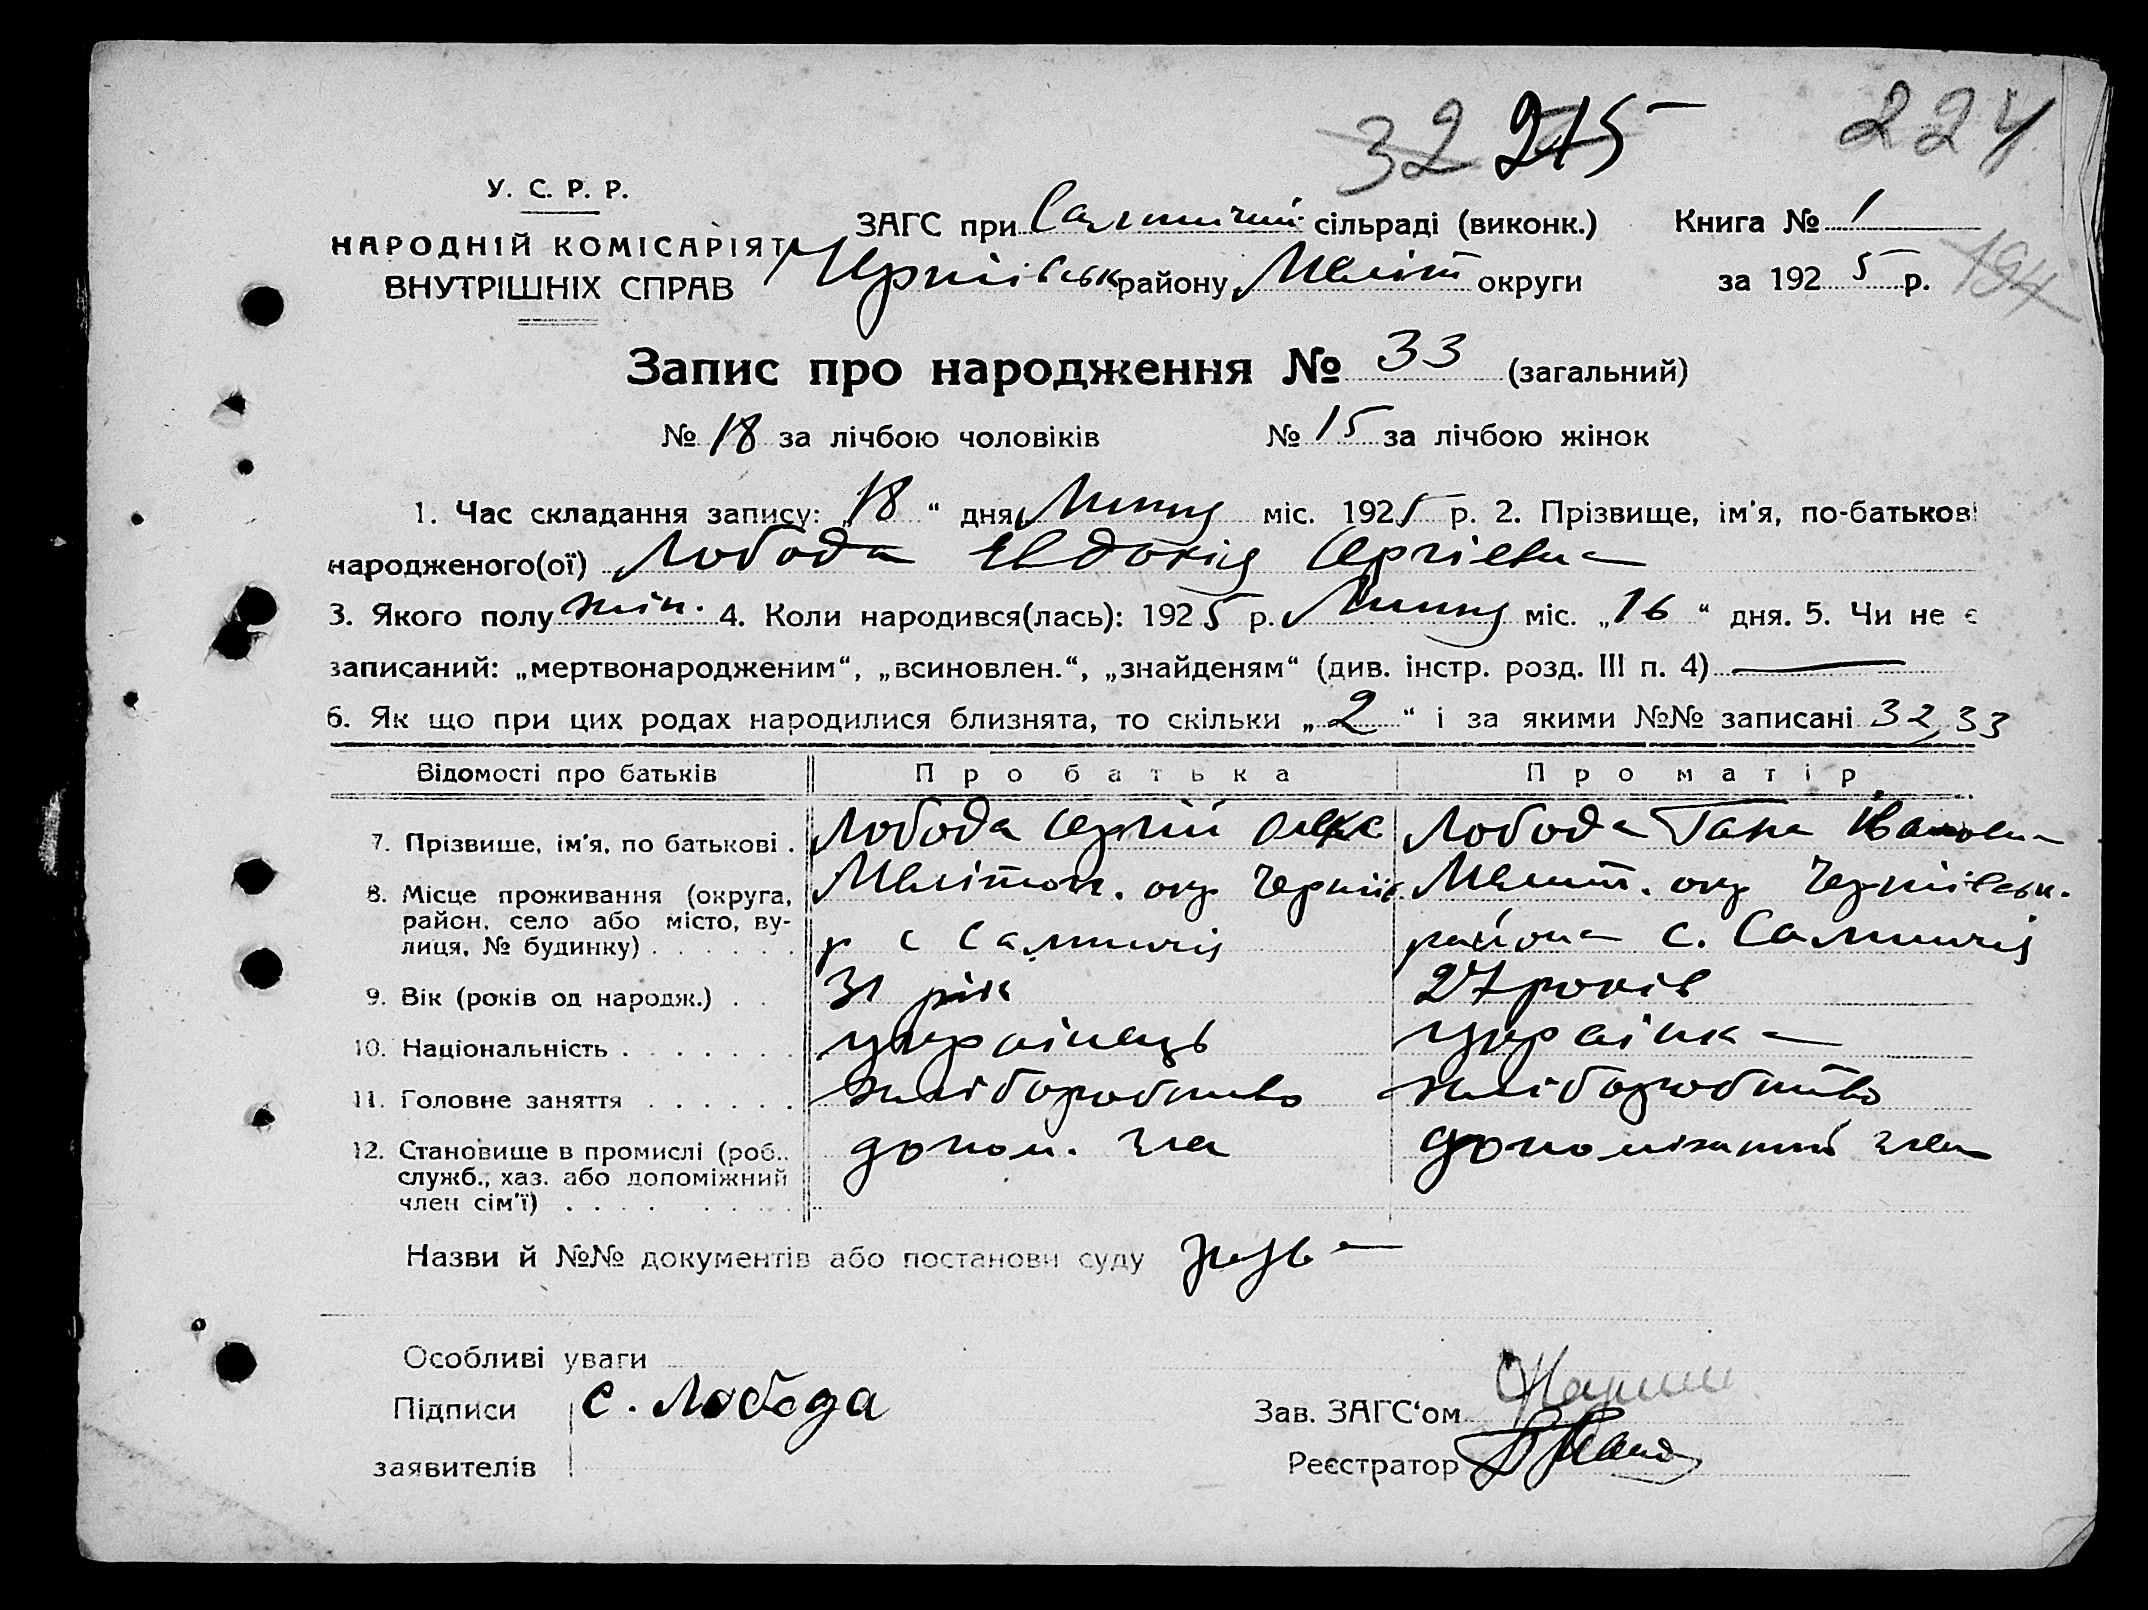 32 215 224
У. С. Р. Р.
НАРОДНІЙ КОМІСАРІЯТ
ВНУТРІШНІХ СПРАВ
ЗАГС при сільраді (виконк.) Книга № 1
Чернігівськ району Меліт округи за 1925 р. 194
Запис про народження № 33 (загальний)
№ 18 за лічбою чоловіків № 15 за лічбою жінок
1. Час складання запису: „18“ дня Липня міс. 1925 р. 2. Прізвище, ім'я, по-батькові
народженого(ої) Лобода Евдокія Сергіевна
3. Якого полу жін. 4. Коли народився(лась): 1925 р. Липня міс. „16“ дня. 5. Чи не є
записаний: „мертвонародженим“, „всиновлен.“, „знайденям“ (див. інстр. розд. III п. 4) —
6. Як що при цих родах народилися близнята, то скільки „2“ і за якими №№ записані 32, 33
Відомості про батьків Про батька Про матір
7. Прізвише, ім'я, по батькові . Лобода Сергій Олекс Лобода Гана Івановна
8. Місце проживання (округа, Мелітоп. окр Чернігів Меліт. окр Чернігівськ.
район, село або місто, ву-
лиця, № будинку) . . . . . . р с району с.
9. Вік (років од народж.) . . 31 рік 27 років
10. Національність . . . . . . . українець українка
11. Головне заняття . . . . . . хліборобство хліборобство
12. Становище в промислі (роб.. допом. член допоміжний член
служб., хаз. або допоміжний
член сім'ї) . . . . . . . .
Назви й №№ документів або постанови суду
Особливі уваги
Підписи С. Лобода Зав. ЗАГС‘ом
заявителів Реєстратор